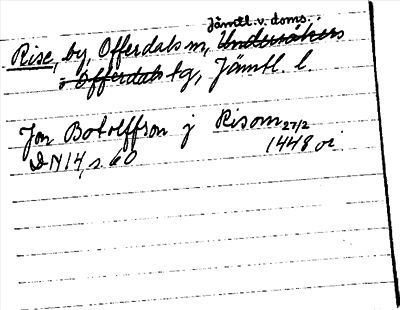 Jämtl. v. doms.
Rise, by, Offerdals sn, Undersåkers
o Offerdals tg, Jämtl. l.
Jon Botolffson j Risom 27/2
DN 14, s. 60 1448 vi